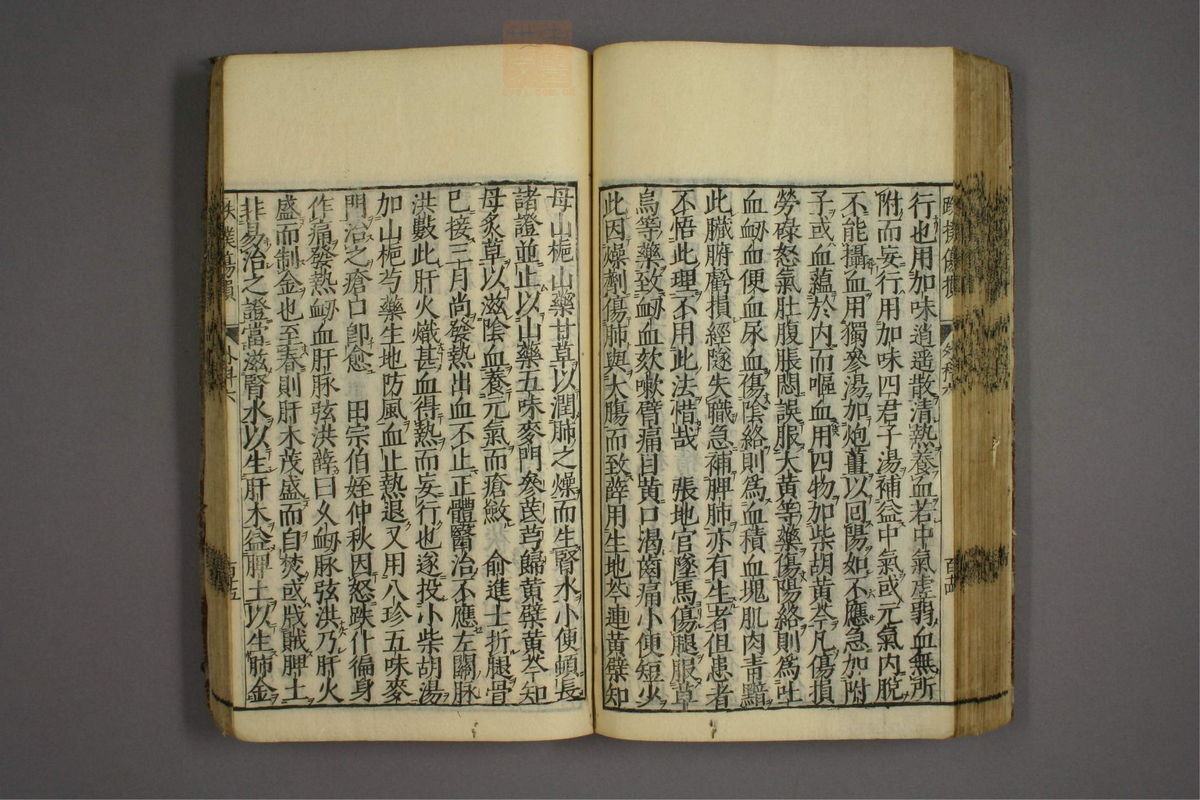 行也用加味逍遥散清熱養血若中氣虚弱血無所
附而妄行用加味四君子湯補益中氣或元氣内脱
不能攝血用獨參湯加炮薑以回陽如不應急加附
子或血蘊於内而嘔血用四物加柴胡黄芩凡傷損
勞碌怒氣肚腹脹悶誤服大黄等藥傷陽絡則爲吐
血衂血便血尿血傷陰絡則爲血積血塊肌肉青黯
此臟腑虧損經隧失職急補脾肺亦有生者但患者
不悟此理不用此法惜哉　張地官墜馬傷腿服草
烏等藥致衂血欬嗽臂痛目黄口渴齒痛小便短少
此因燥劑傷肺與大腸而致薛用生地芩連黄檗知
母山梔山藥甘草以潤肺之燥而生腎水小便頓長
諸證並止以山藥五味麥門參芪芎歸黄檗黄芩知
母炙草以滋陰血養元氣而瘡斂　俞進士折腿骨
已接三月尚發熱出血不止正體醫治不應左關脉
洪數此肝火熾甚血得熱而妄行也遂投小柴胡湯
加山梔芍藥生地防風血止熱退又用八珍五味麥
門治之瘡口即愈　田宗伯姪仲秋因怒跌仆徧身
作痛發熱衂血肝脉弦洪薛曰久衂脉弦洪乃肝火
盛而制金也至春則肝木茂盛而自焚或戕賊脾土
非易治之證當滋腎水以生肝木益脾土以生肺金